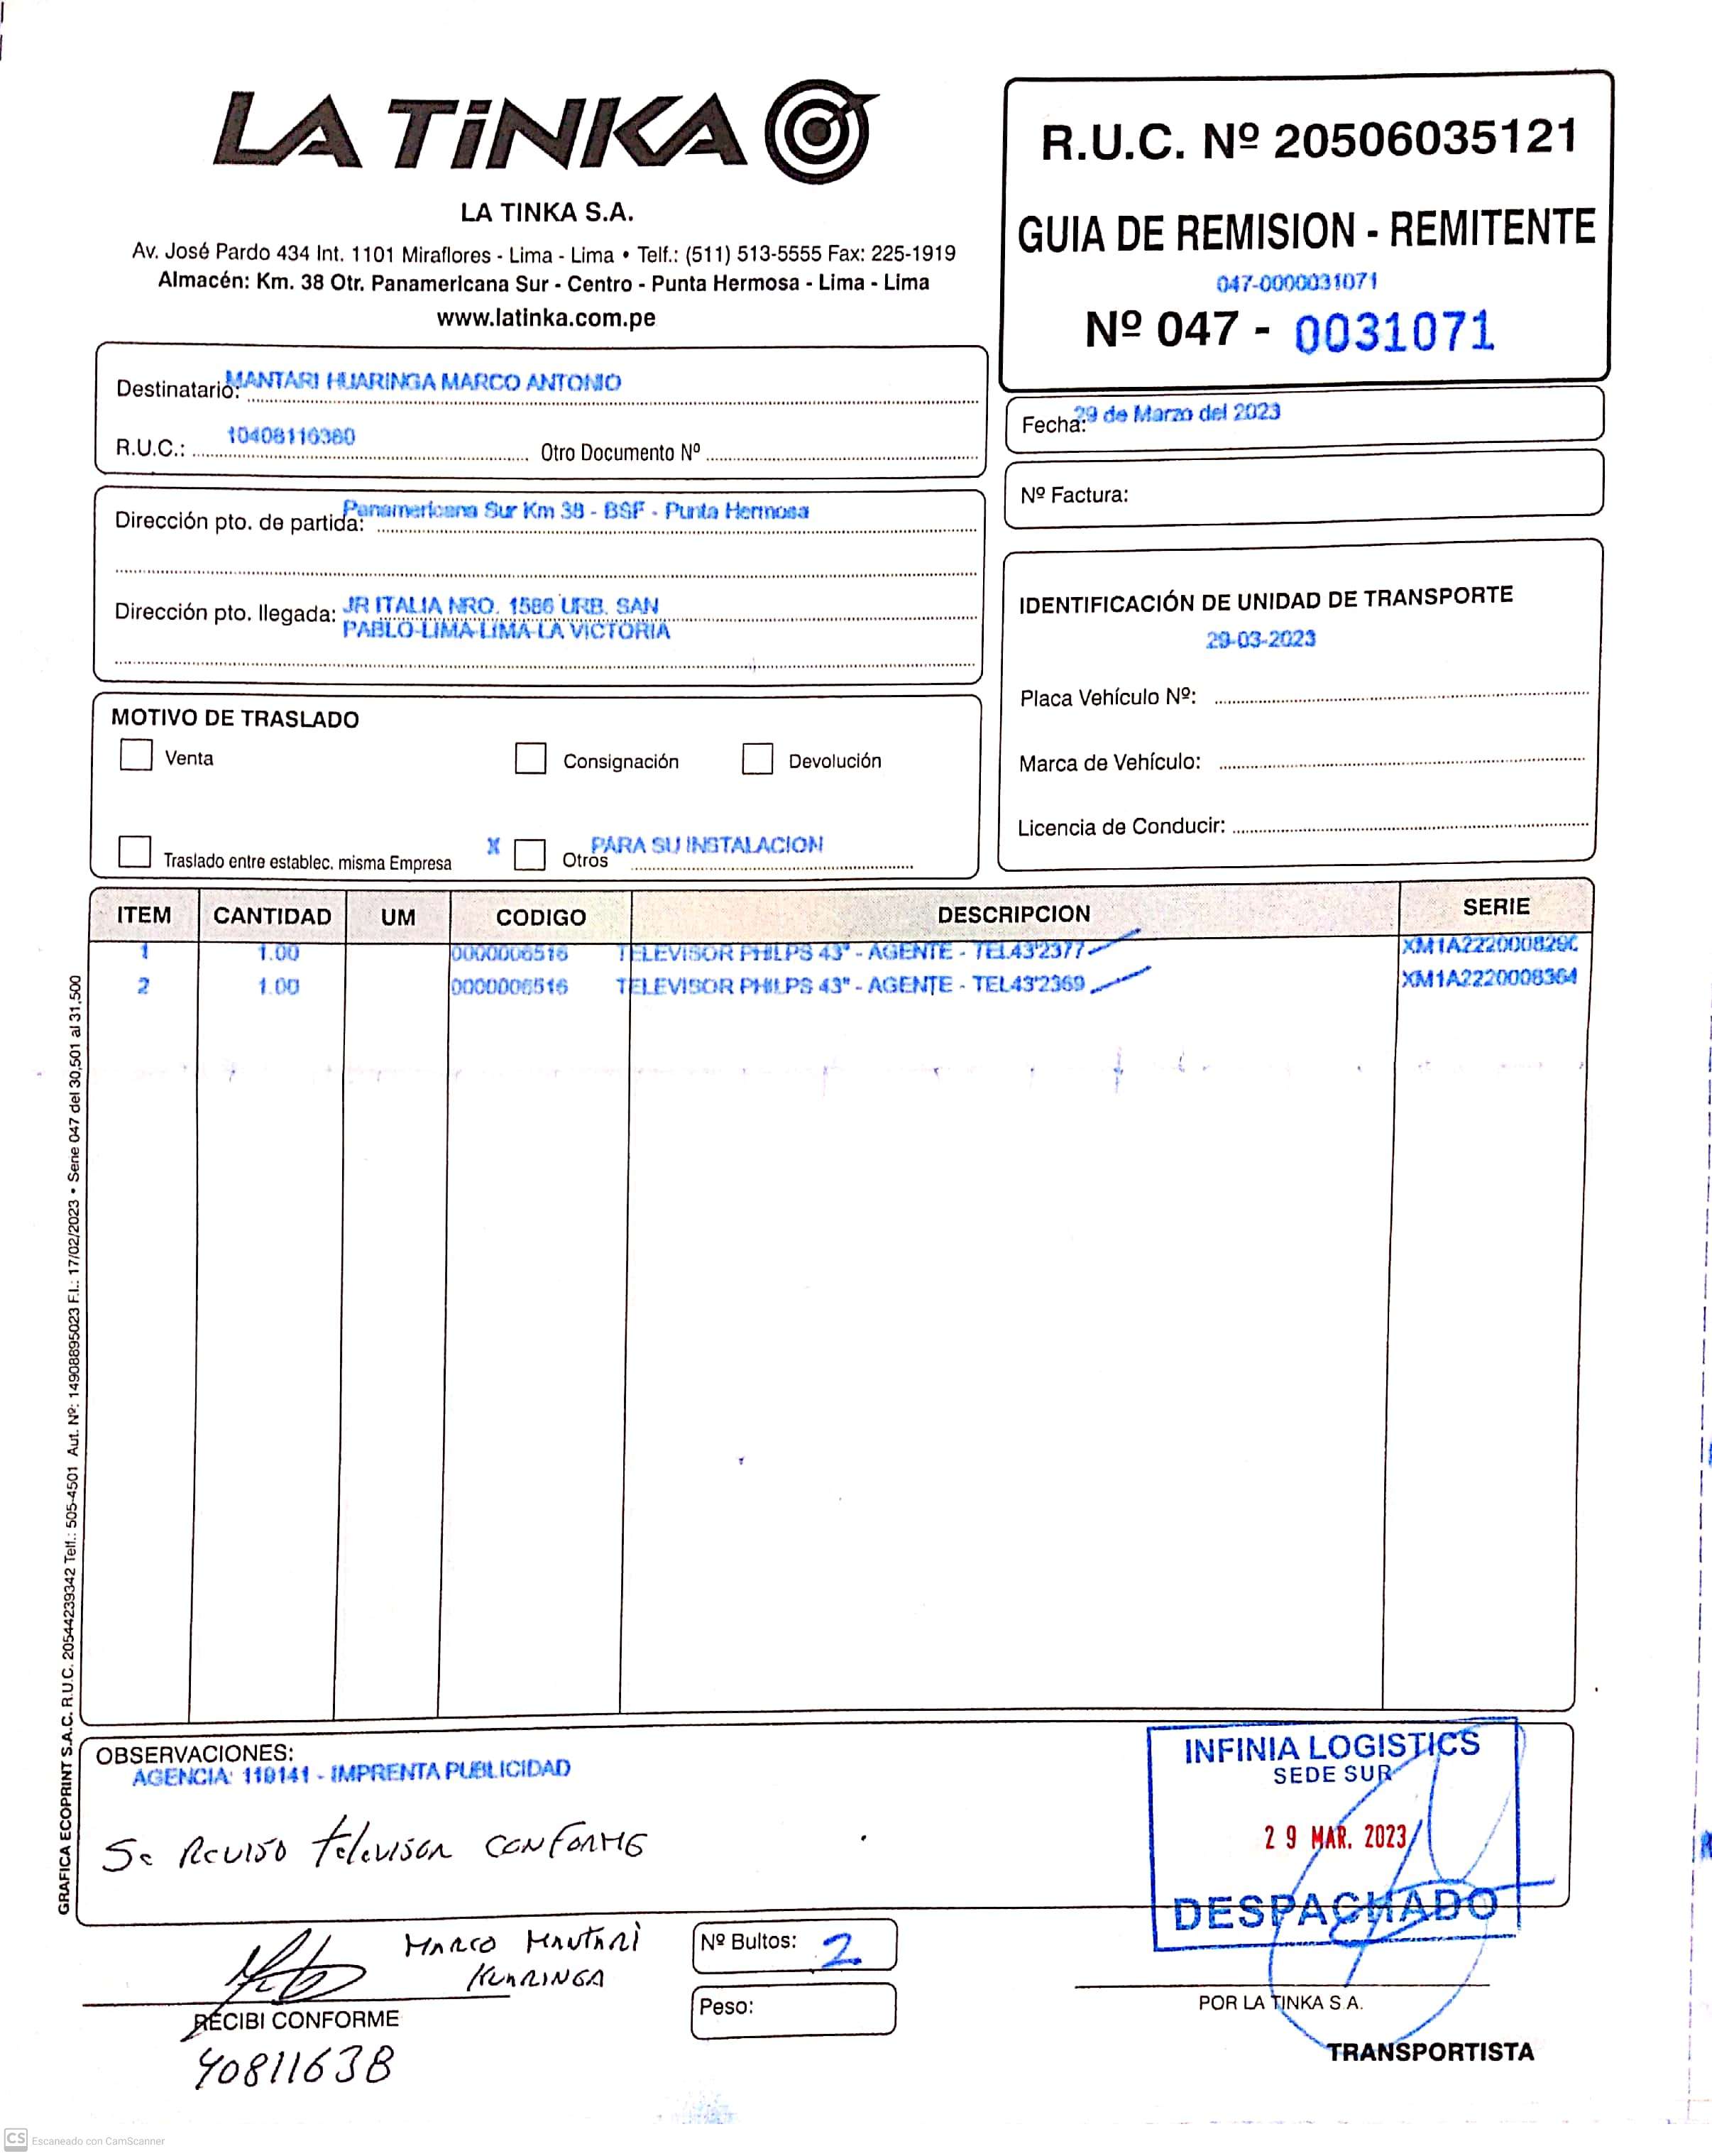 LA TiNKA
LA TINKA S.A.
Av. José Pardo 434 Int. 1101 Miraflores - Lima - Lima • Telf.: (511) 513-5555 Fax: 225-1919
Almacén: Km. 38 Otr. Panamericana Sur - Centro - Punta Hermosa - Lima - Lima
www.latinka.com.pe
R.U.C. Nº 20506035121
GUIA DE REMISION - REMITENTE
047-0000031071
Nº 047 - 0031071
Destinatario: MANTARI HUARINGA MARCO ANTONIO
R.U.C.: 10408116380 Otro Documento Nº
Fecha: 29 de Marzo del 2023
Nº Factura:
Dirección pto. de partida: Panamericana Sur Km 38 - BSF - Punta Hermosa
Dirección pto. llegada: JR ITALIA NRO. 1586 URB. SAN
PABLO-LIMA-LIMA-LA VICTORIA
IDENTIFICACIÓN DE UNIDAD DE TRANSPORTE
29-03-2023
Placa Vehículo Nº:
Marca de Vehículo:
Licencia de Conducir:
MOTIVO DE TRASLADO
Venta Consignación Devolución
Traslado entre establec. misma Empresa X Otros PARA SU INSTALACION
ITEM CANTIDAD UM CODIGO DESCRIPCION SERIE
1 1.00 0000006516 TELEVISOR PHILPS 43" - AGENTE - TEL43'2377 XM1A222000829C
2 1.00 0000006516 TELEVISOR PHILPS 43" - AGENTE - TEL43'2369 XM1A2220008364
GRAFICA ECOPRINT S.A.C. R.U.C. 20544239342 Telf.: 505-4501 Aut. Nº: 14908895023 F.I.: 17/02/2023 • Serie 047 del 30,501 al 31.500
OBSERVACIONES:
AGENCIA: 110141 - IMPRENTA PUBLICIDAD
Se Reviso televisor CONFORME
INFINIA LOGISTICS
SEDE SUR
29 MAR. 2023
DESPACHADO
MARCO MANTARI
HUARINGA
RECIBI CONFORME
40811638
Nº Bultos: 2
Peso:
POR LA TINKA S A.
TRANSPORTISTA
CS Escaneado con CamScanner